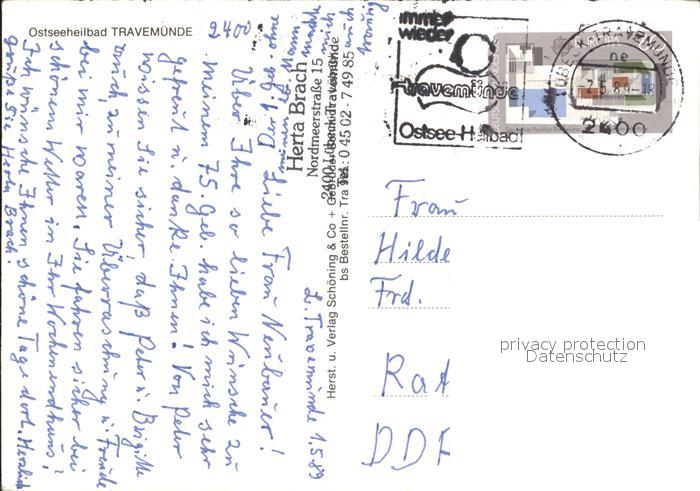 Ostseeheilbad TRAVEMÜNDE
2400
Herta Brach
Nordmeerstraße 15
2400 Lübeck-Travemünde
Tel.: 0 45 02 - 7 49 85
L. Travemünde 1.5.89
Liebe Frau Neubauer!
Über Ihre so lieben Wünsche zu
meinem 75. Geb. habe ich mich sehr
gefreut u. danke Ihnen! Von Peter
wissen Sie sicher, daß Peter u. Brigitte
auch zu meiner Überraschung u. Freude
bei mir waren. Sie fahren sicher bei
schönem Wetter in Ihr Wochenendhaus!
Ich wünsche Ihnen schöne Tage dort. Herzlich
grüße Sie Herta Brach.
Herst. u. Verlag Schöning & Co + Gebrüder Schmidt
bs Bestellnr. Tra
immer
wieder
Travemünde
Ostsee-Heilbad
TRAVEMÜNDE
-2.5.89-18
2400
Frau
Hilde
Frd.
Rat
DDR
privacy protection
Datenschutz